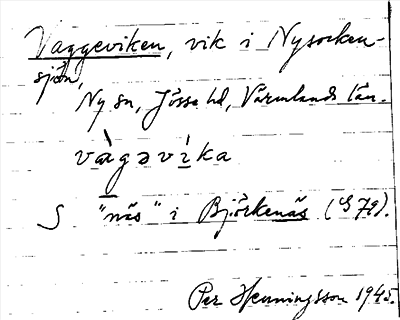 Vaggeviken, vik i Nysocken-
sjön,
Ny sn, Jösse hd, Värmlands län.
vàgəvìka
S "näs" i Björkenäs (S 79).
Per Henningsson 1945.